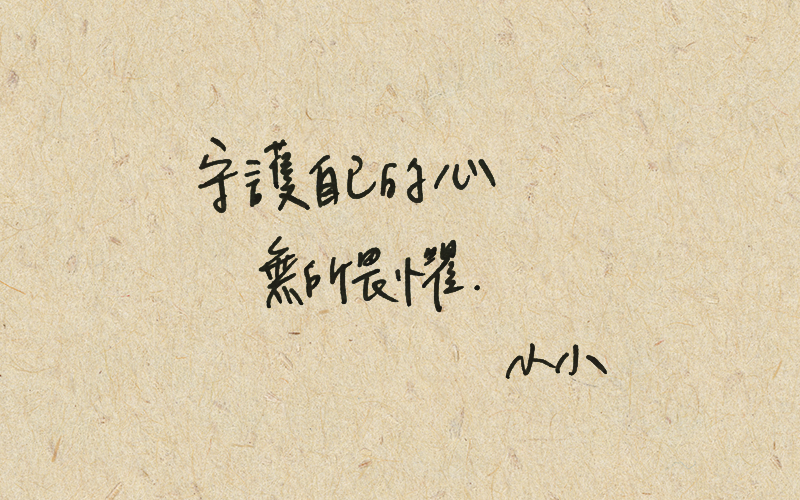 守護自己的心
無所畏懼.
小小